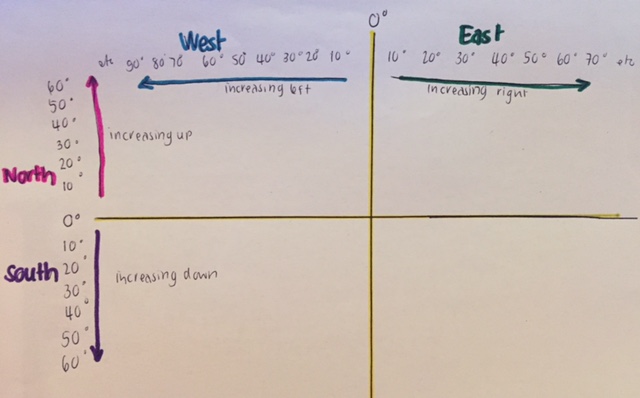 0°
West
East
etc 90° 80° 70° 60° 50° 40° 30° 20° 10°
10° 20° 30° 40° 50° 60° 70° etc
increasing left
increasing right
60°
50°
40°
increasing up
30°
20°
North
10°
0°
10°
South
20°
increasing down
30°
40°
50°
60°